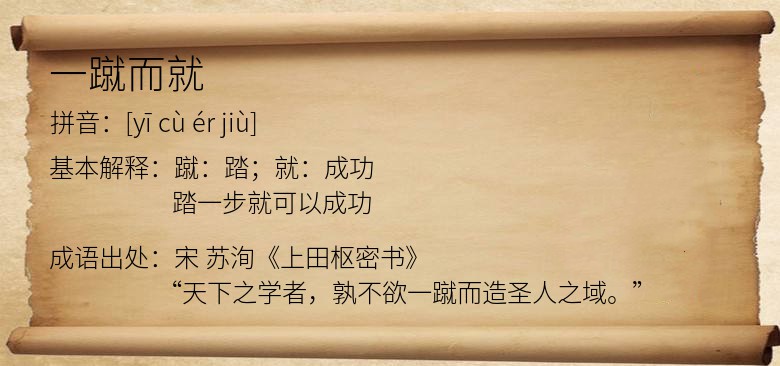 一蹴而就
拼音：[yī cù ér jiù]
基本解释：蹴：踏；就：成功
踏一步就可以成功
成语出处：宋 苏洵《上田枢密书》
“天下之学者，孰不欲一蹴而造圣人之域。”